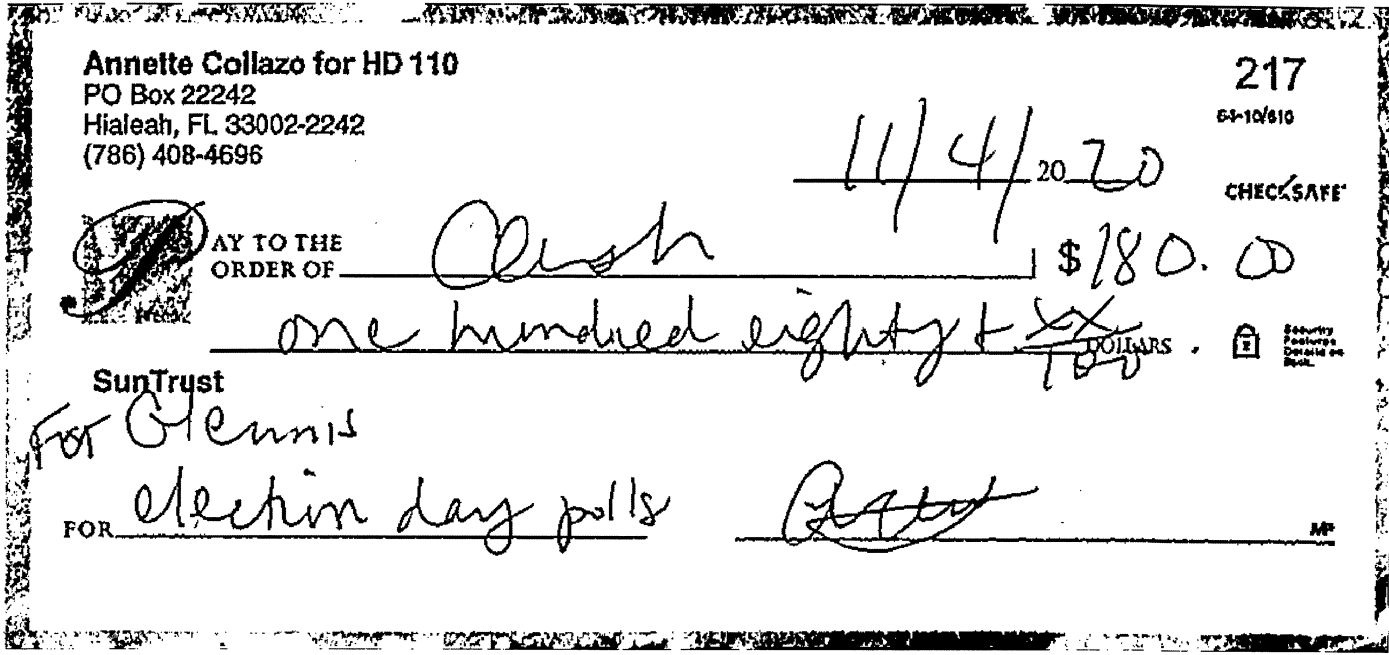 Annette Collazo for HD 110
217
PO Box 22242
64-10/610
Hialeah, FL 33002-2242
(786) 408-4696
11/4/ 20 20
CHECKSAFE
PAY TO THE
ORDER OF Cash $180.00
one hundred eighty + xx/100 DOLLARS
Security
Features
Details on
Back.
SunTrust
For Glennis
FOR election day polls
MP